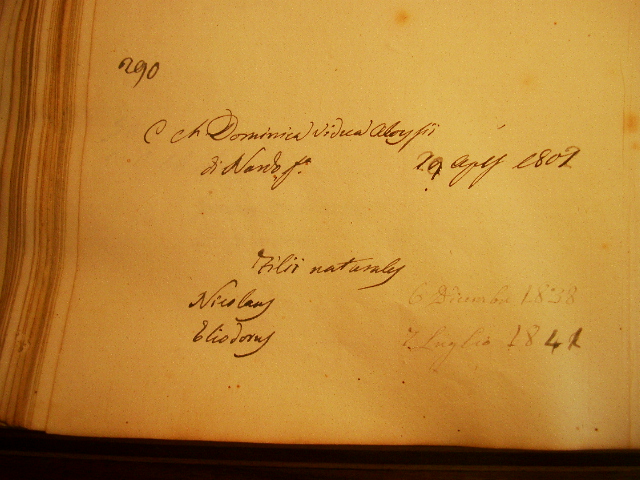 290
C A Dominica Vidua Aloysii
di Nardo f.ª 29 Aplis 1802
Filii naturales
Nicolaus 6 Dicembre 1838
Eliodorus 7 Luglio 1841